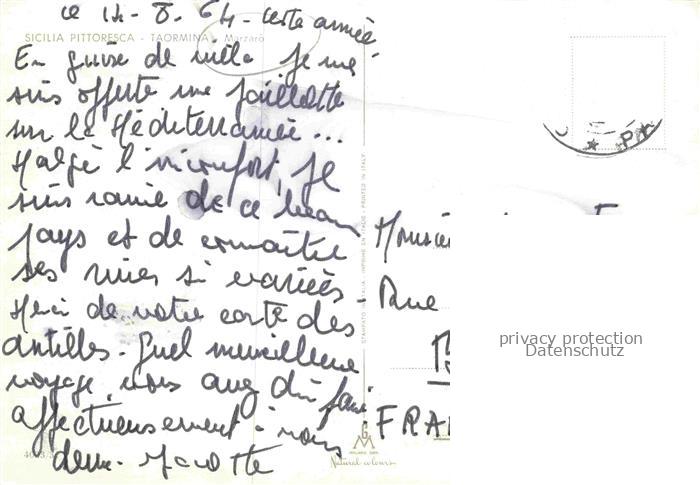 ce 14-8.64. cette année,
SICILIA PITTORESCA - TAORMINA - Mazzarò
En guise de villa je me
suis offerte une paillotte
sur la Méditerranée...
Malgré l'inconfort, je
suis ravie de ce beau
pays et de connaître
ses rives si variées -
Merci de votre carte des
antilles. Quel merveilleux
voyage vous avez dû faire
affectueusement à vous
deux. Mayotte
STAMPATO IN ITALIA - IMPRIMÉ EN ITALIE - PRINTED IN ITALY
MILANO
Natural colours
Monsieu
Rue
FRAN
privacy protection
Datenschutz